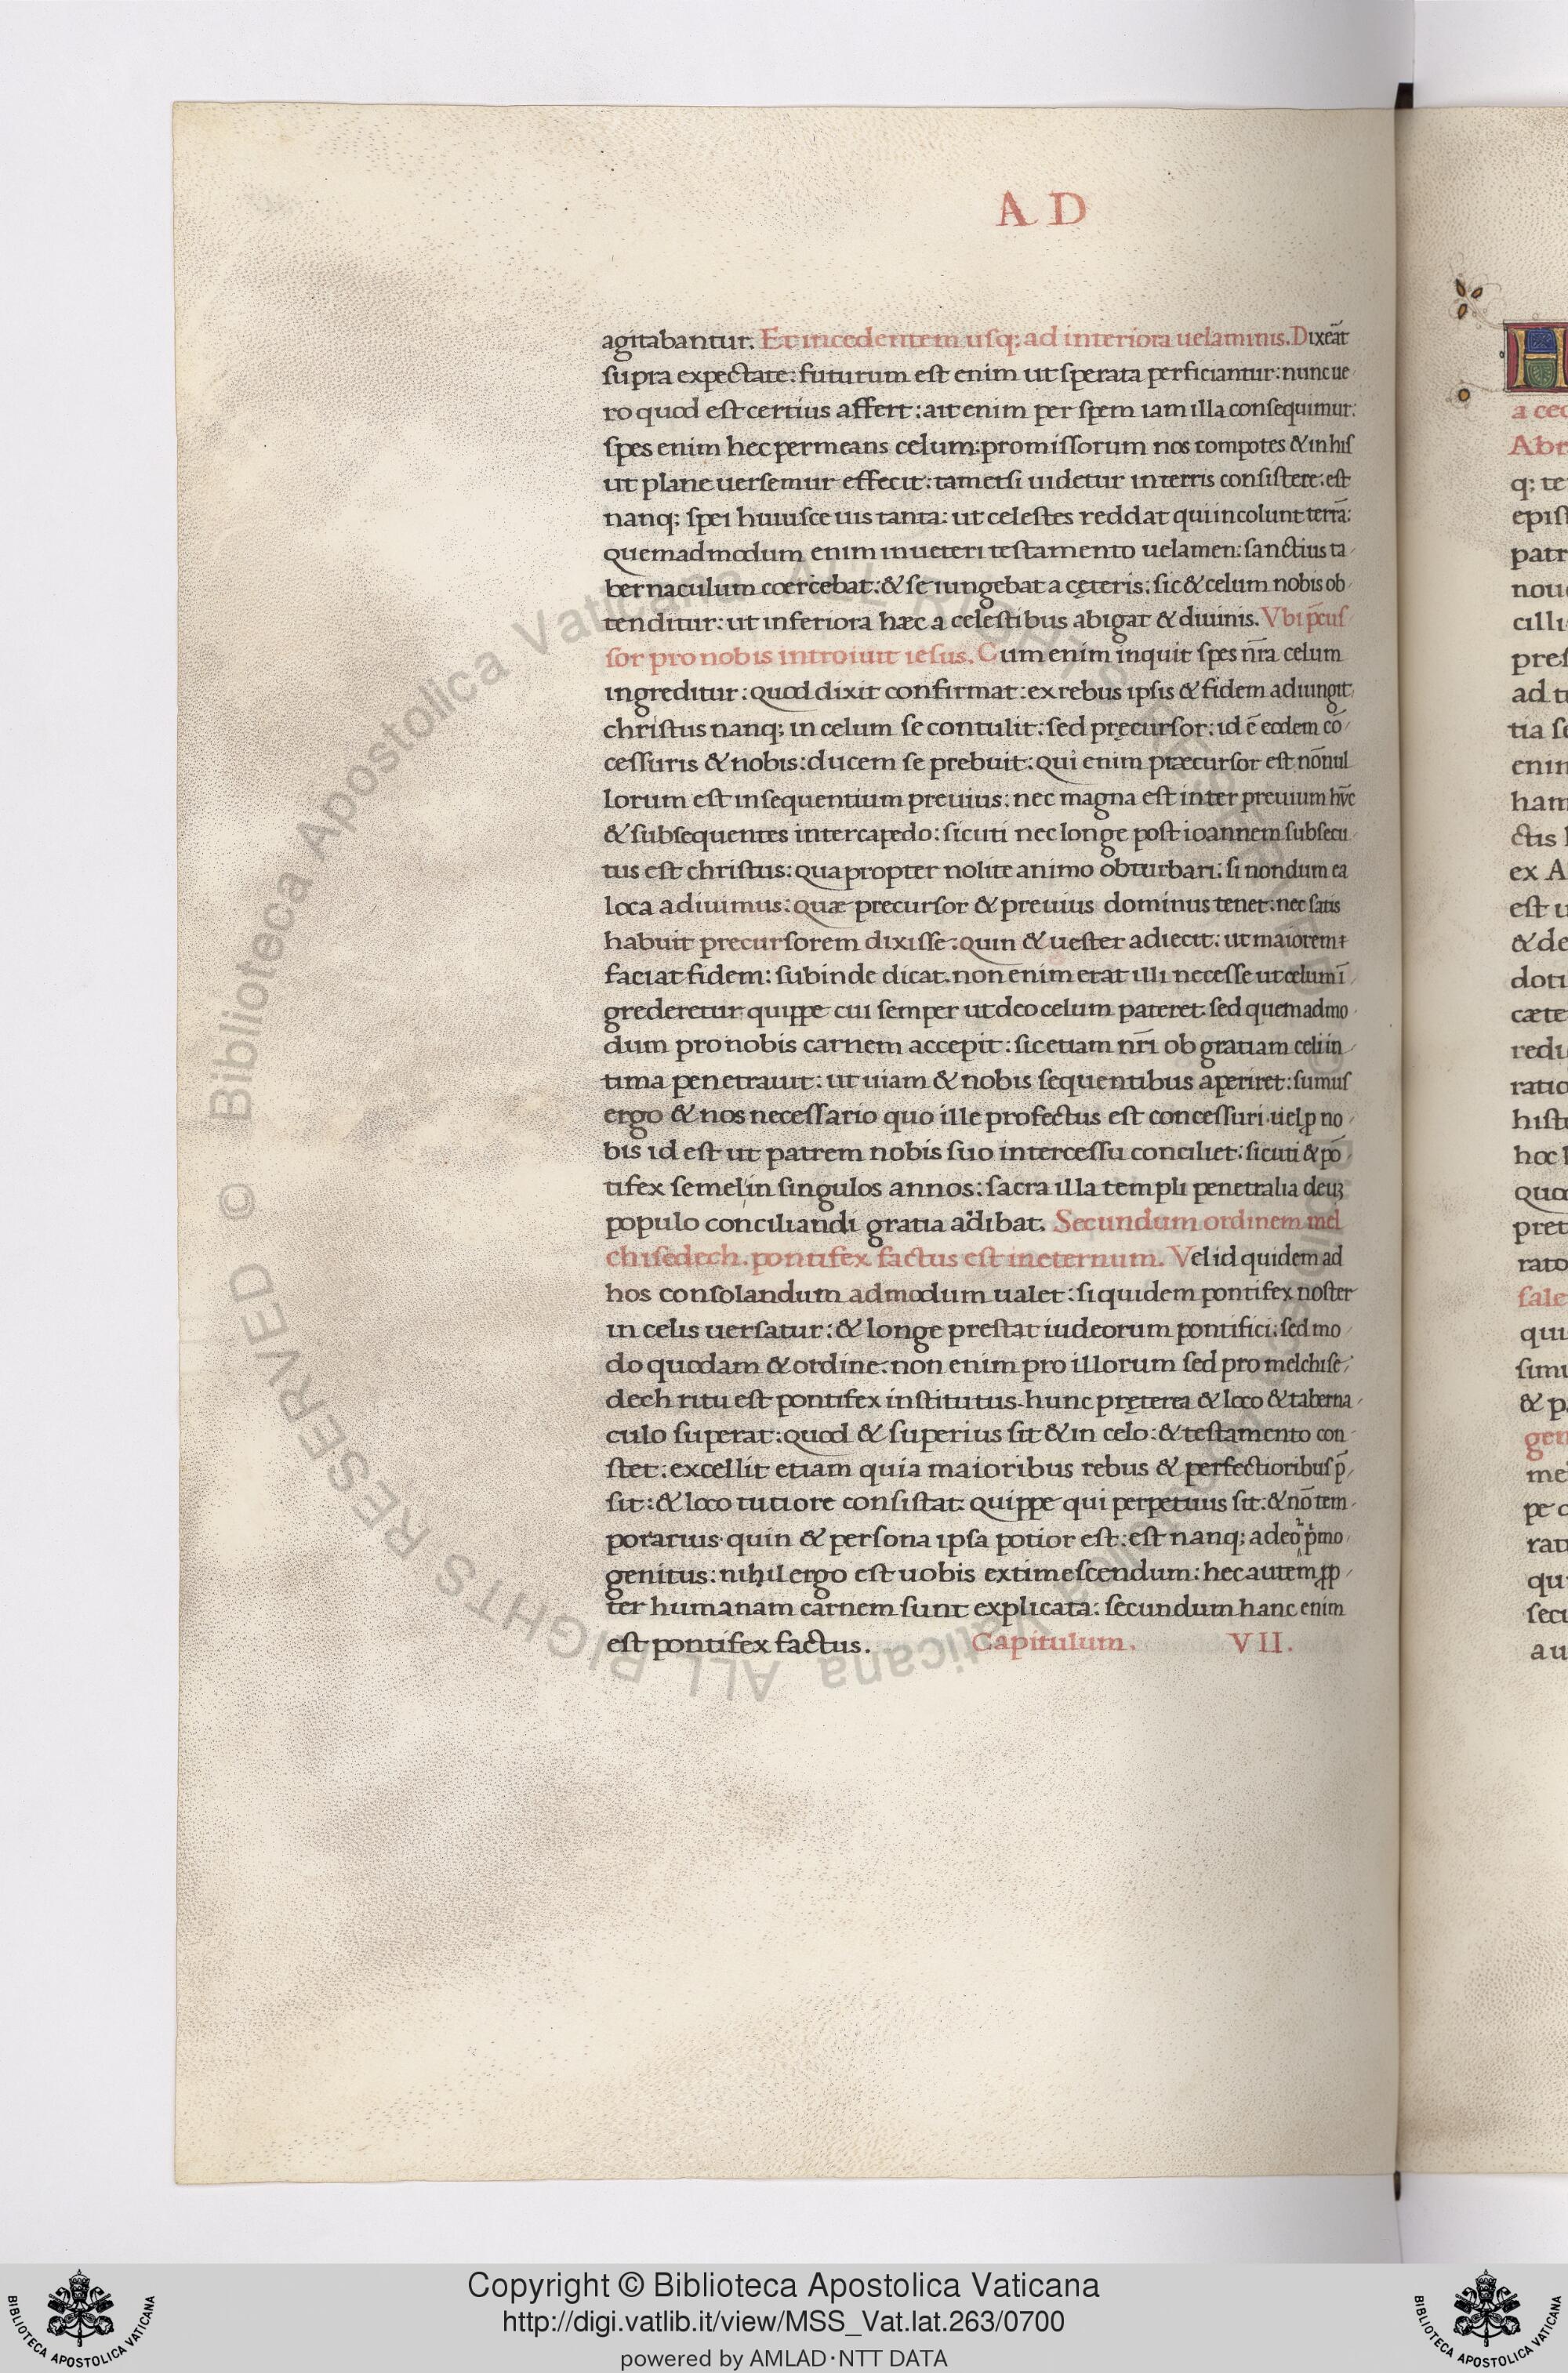 A D
agitabantur. Et incedentem usq; ad interiora uelaminis. Dixeãt
supra expectate: futurum est enim ut sperata perficiantur: nunc ue
ro quod est certius affert: ait enim per spem iam illa consequimur:
spes enim hec permeans celum: promissorum nos compotes & in his
ut plane uersemur effecit: tametsi uidetur in terris consistere: est
nanq; spei huiusce uis tanta: ut celestes reddat qui incolunt terrã:
quemadmodum enim in ueteri testamento uelamen: sanctius ta
bernaculum coercebat: & seiungebat a cęteris: sic & celum nobis ob
tenditur: ut inferiora hæc a celestibus abigat & diuinis. Vbi p̄cur
sor pro nobis introiuit iesus. Cum enim inquit spes nr̄a celum
ingreditur: quod dixit confirmat: ex rebus ipsis & fidem adiungit
christus nanq; in celum se contulit: sed pręcursor: id ē eodem cō
cessuris & nobis: ducem se prebuit: qui enim præcursor est nōnul
lorum est insequentium preuius: nec magna est inter preuium hũc
& subsequentes intercapedo: sicuti nec longe post ioannem subsecu
tus est christus: quapropter nolite animo obturbari: si nondum ea
loca adiuimus: quæ precursor & preuius dominus tenet: nec satis
habuit precursorem dixisse: quin & uester adiecit: ut maiorem
faciat fidem: subinde dicat. non enim erat illi necesse ut celum ī
grederetur quippe cui semper ut deo celum pateret: sed quemadmo
dum pro nobis carnem accepit: sic etiam nr̄i ob gratiam celi in
tima penetrauit: ut uiam & nobis sequentibus aperiret: sumus
ergo & nos necessario quo ille profectus est concessuri. uel ꝓ no
bis id est ut patrem nobis suo intercessu conciliet: sicuti & pō
tifex semel in singulos annos: sacra illa templi penetralia deuʒ
populo conciliandi gratia adibat. Secundum ordinem mel
chisedech. pontifex factus est in eternum. Vel id quidem ad
hos consolandum admodum ualet: siquidem pontifex noster
in celis uersatur: & longe prestat iudeorum pontifici: sed mo
do quodam & ordine: non enim pro illorum sed pro melchise
dech ritu est pontifex institutus. hunc pręterea & loco & taberna
culo superat: quod & superius sit & in celo: & testamento con
stet: excellit etiam quia maioribus rebus & perfectioribus p̄
sit: & loco tutiore consistat: quippe qui perpetuus sit: & nō tem
porarius. quin & persona ipsa potior est: est nanq; adeo pͥmo
genitus: nihil ergo est uobis extimescendum: hec autem ꝓp
ter humanam carnem sunt explicata: secundum hanc enim
est pontifex factus. Capitulum. VII.
a ced
Abr
q: te
epist
patr
noue
cilli
pres
ad t
tia se
enim
ham
ctis
ex A
est u
& de
doti
cæte
redi
ratio
histo
hoc
quo
pret
rato
sale
qui
simu
& p
gen
me
pe c
rati
qu
secu
au
© Biblioteca Apostolica Vaticana ALL RIGHTS RESERVED
© Biblioteca Apostolica Vaticana ALL RIGHTS RESERVED
Copyright © Biblioteca Apostolica Vaticana
http://digi.vatlib.it/view/MSS_Vat.lat.263/0700
powered by AMLAD·NTT DATA
BIBLIOTECA APOSTOLICA VATICANA
BIBLIOTECA APOSTOLICA VATICANA